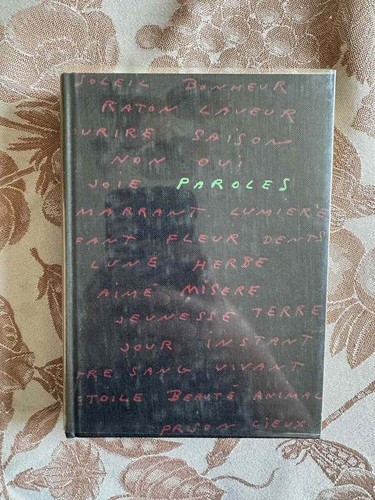 SOLEIL BONHEUR
RATON LAVEUR
OURIRE SAISON
NON OUI
JOIE PAROLES
MARRANT LUMIERE
FANT FLEUR DENTS
LUNE HERBE
AIMÉ MISERE
JEUNESSE TERRE
JOUR INSTANT
FRE SANG VIVANT
ETOILE BEAUTÉ ANIMAL
PRISON CIEUX